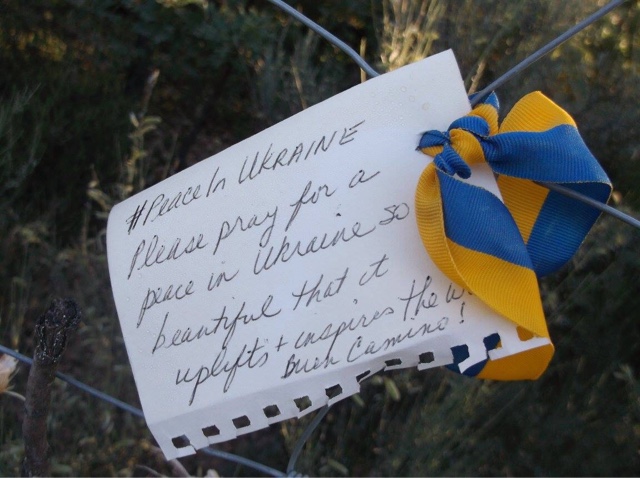 #PeaceIn UKRAINE
Please pray for a
peace in Ukraine so
beautiful that it
uplifts + inspires the
Buen Camino!